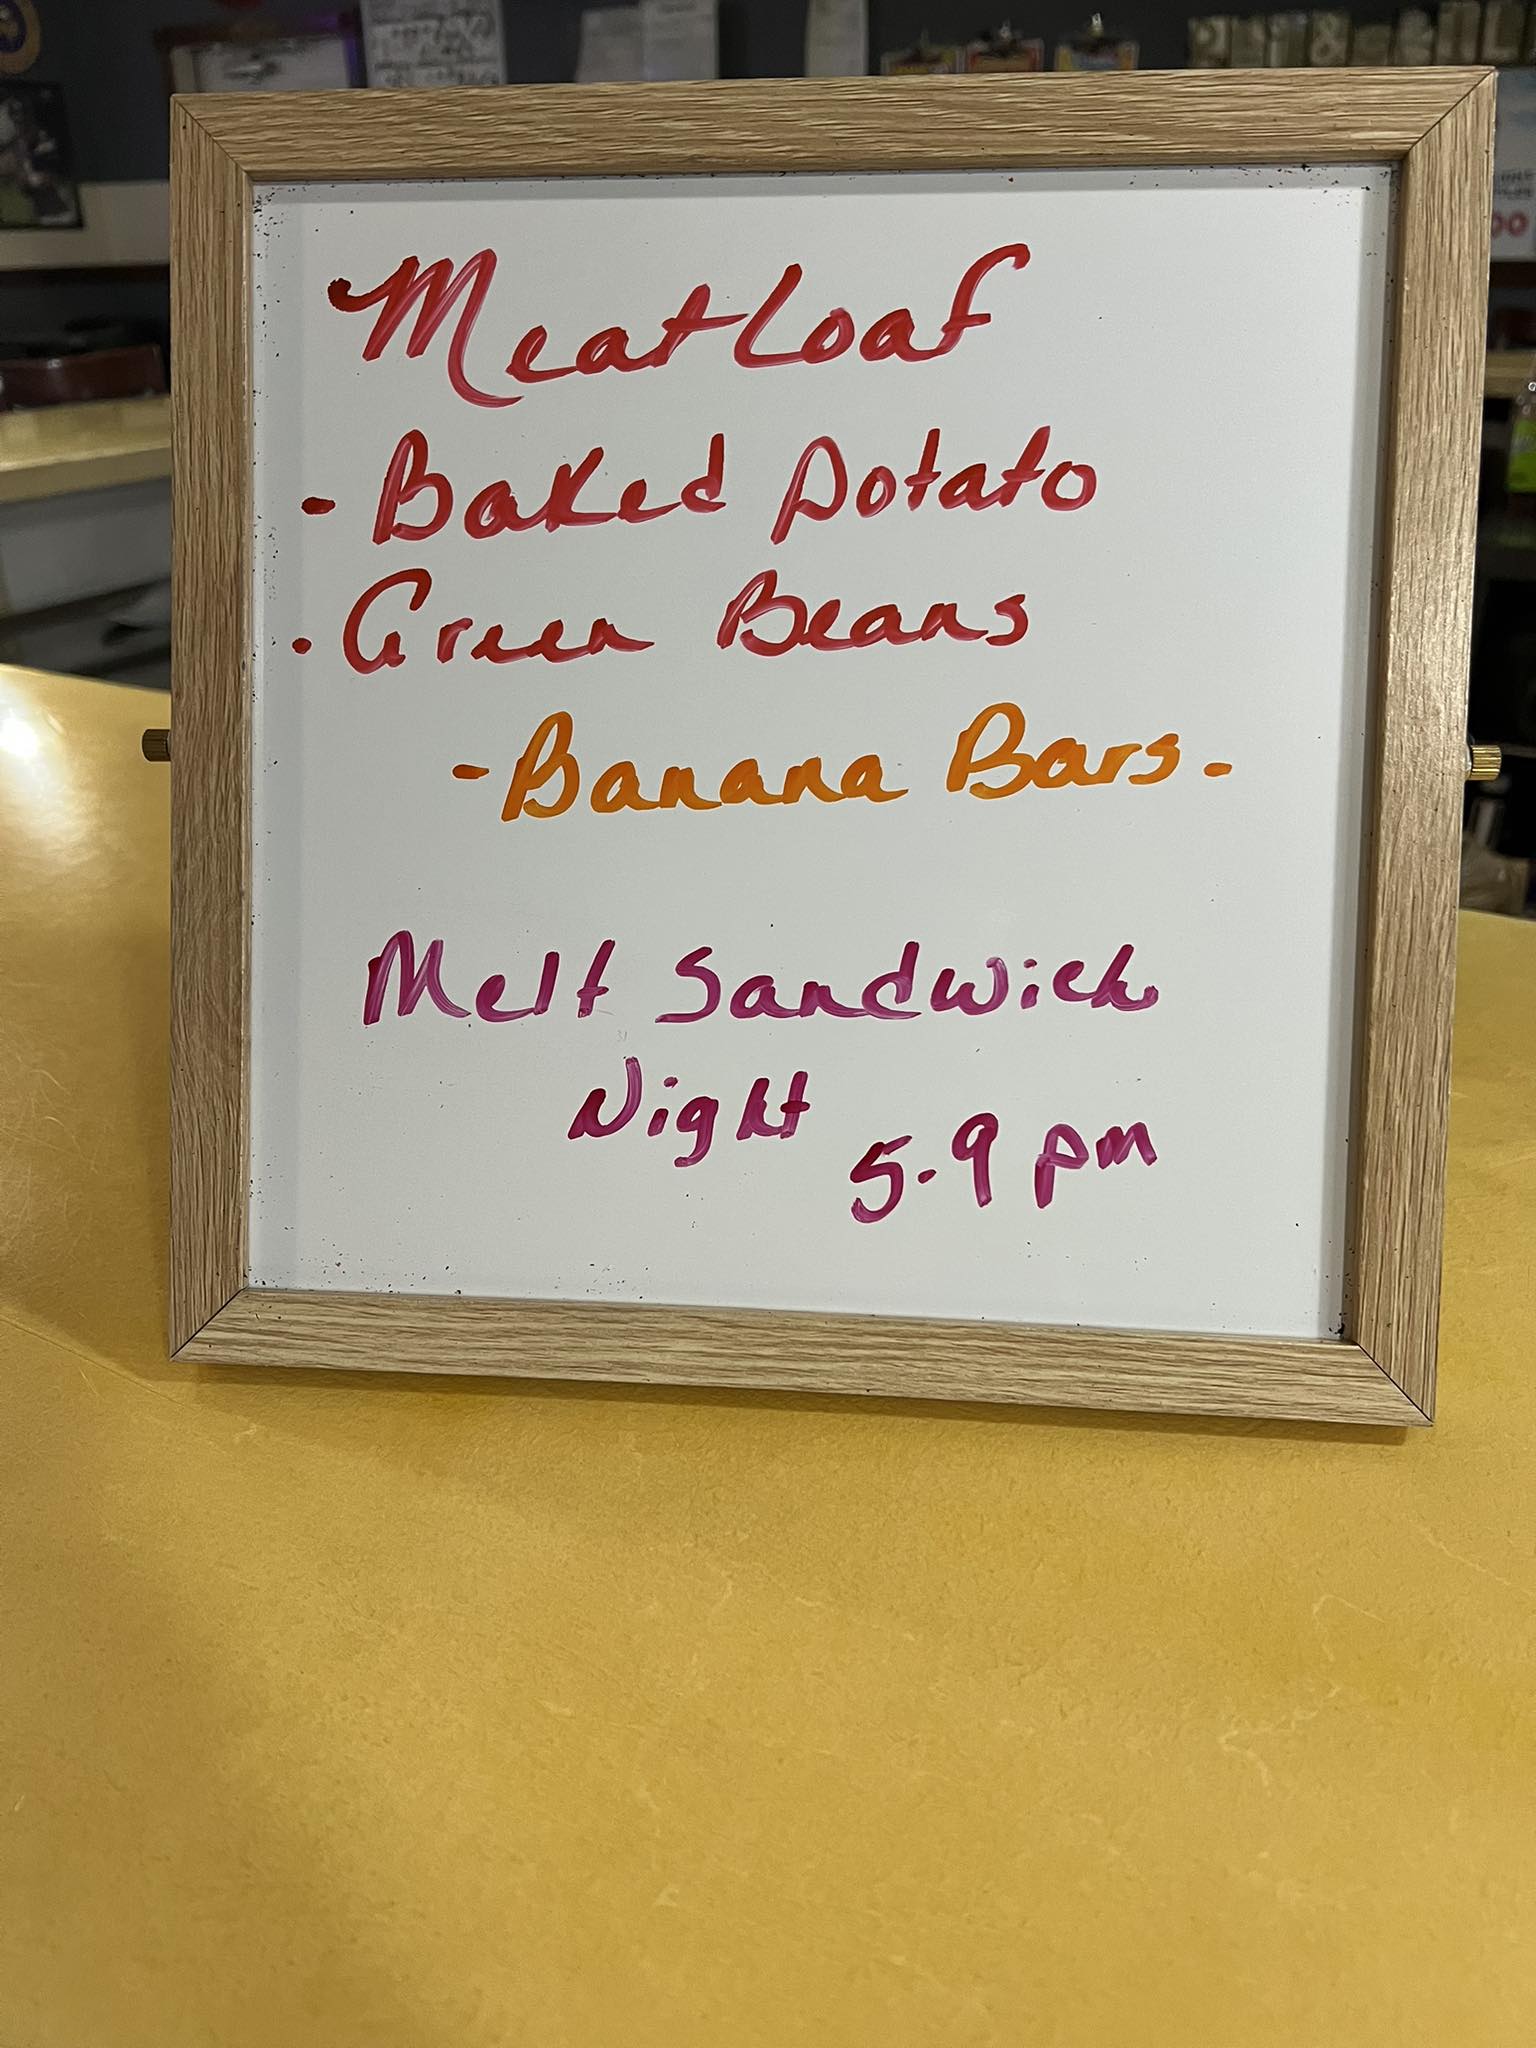 Meatloaf
- Baked Potato
· Green Beans
- Banana Bars -
Melt Sandwich
Night 5-9 pm